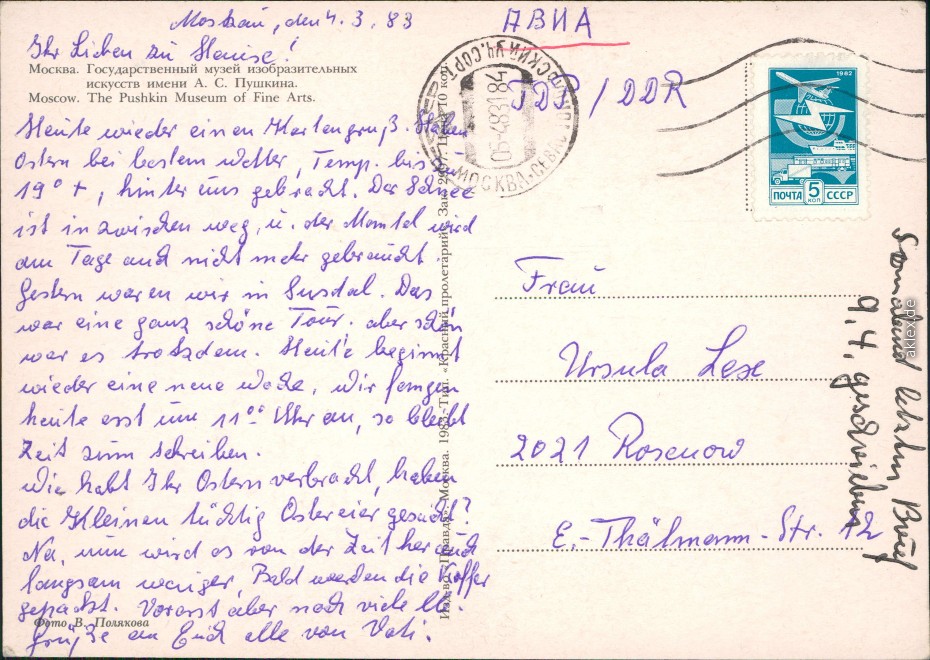 Moskau, den 4.3.83
АВИА
Ihr Lieben zu Hause!
Москва. Государственный музей изобразительных
искусств имени А. С. Пушкина.
Moscow. The Pushkin Museum of Fine Arts.
Heute wieder einen Kartengruß. Haben
Ostern bei bestem Wetter, Temp. bis
19° +, hinter uns gebracht. Der Schnee
ist inzwischen weg, u. der Mantel wird
am Tage auch nicht mehr gebraucht.
Gestern waren wir in Susdal. Das
war eine ganz schöne Tour. aber schön
war es trotzdem. Heute beginnt
wieder eine neue Woche, wir fangen
heute erst um 11°° Uhr an, so bleibt
Zeit zum schreiben.
Wie habt Ihr Ostern verbracht, haben
die Kleinen tüchtig Ostereier gesucht?
Na, nun wird es von der Zeit her auch
langsam weniger, Bald werden die Koffer
gepackt. Vorerst aber noch viele ll.
Grüße an Euch alle von Vati.
Фото В. Полякова
Изд-во «Правда». Москва. 1983. Тип. «Красный пролетарий». Зак. Цена 10 коп.
МОСКВА
/ DDR
1982
ПОЧТА 5 КОП СССР
Frau
Ursula Lese
2021 Rosenow
E.-Thälmann-Str. 12
Sonnabend letzten Brief
9.4. geschrieben
akpool.de